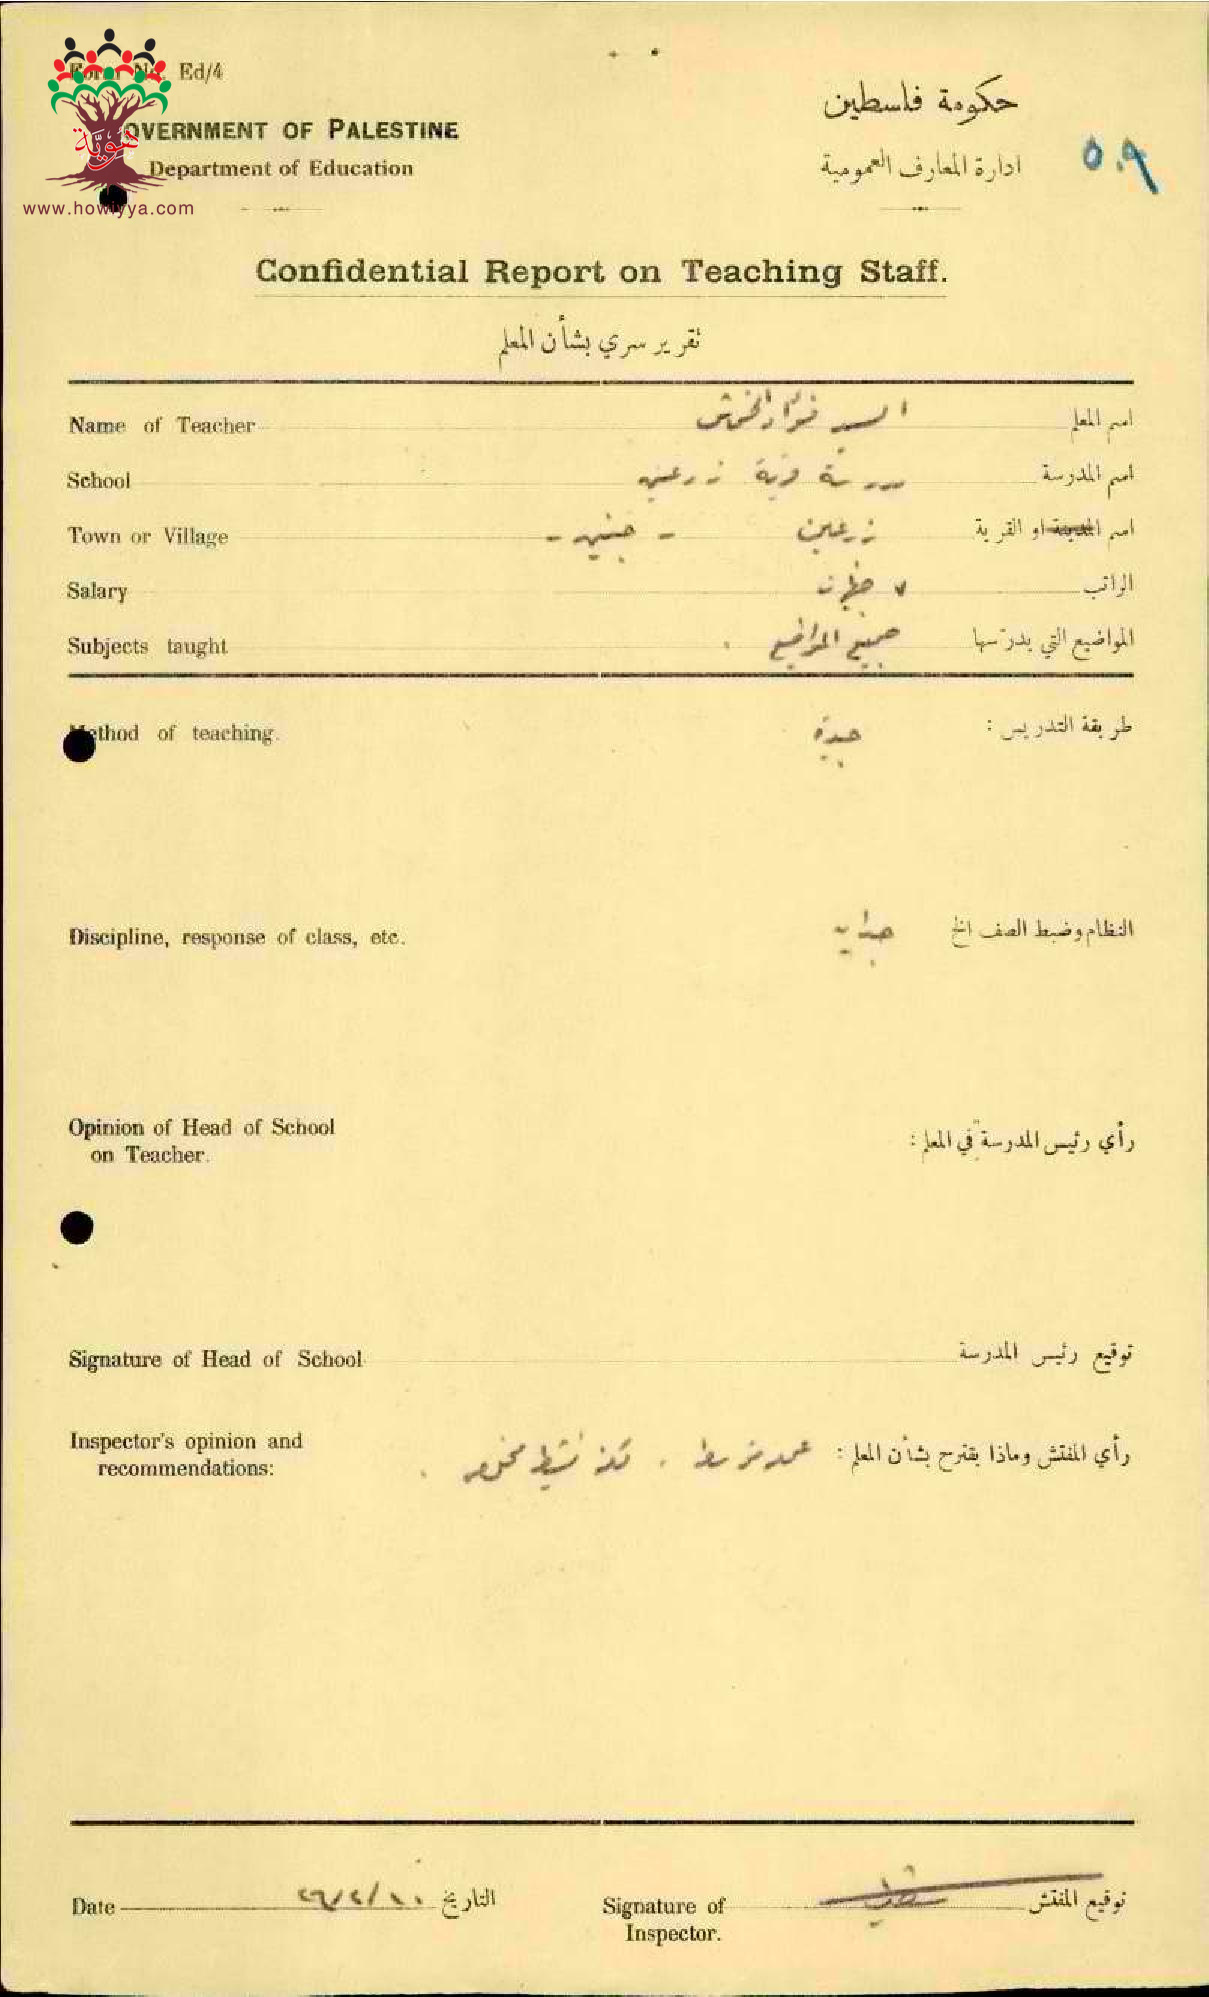 Form No. Ed/4
GOVERNMENT OF PALESTINE
Department of Education
حكومة فلسطين
ادارة المعارف العمومية
٥٠٩
هوية
www.howiyya.com
Confidential Report on Teaching Staff.
تقرير سري بشأن المعلم
Name of Teacher السيد فؤاد الخمش اسم المعلم
School مدرسة قرية زرعين اسم المدرسة
Town or Village زرعين - جنين - اسم المدينة او القرية
Salary ٧ جنيهات الراتب
Subjects taught جميع المواضيع . المواضيع التي يدرّسها
Method of teaching. جيدة طريقة التدريس :
Discipline, response of class, etc. جيدان النظام وضبط الصف الخ
Opinion of Head of School
on Teacher.
رأي رئيس المدرسة في المعلم :
Signature of Head of School توقيع رئيس المدرسة
Inspector's opinion and
recommendations:
رأي المفتش وماذا يقترح بشأن المعلم : متوسط . نشيط مخلص .
Date التاريخ
Signature of
Inspector.
توقيع المفتش